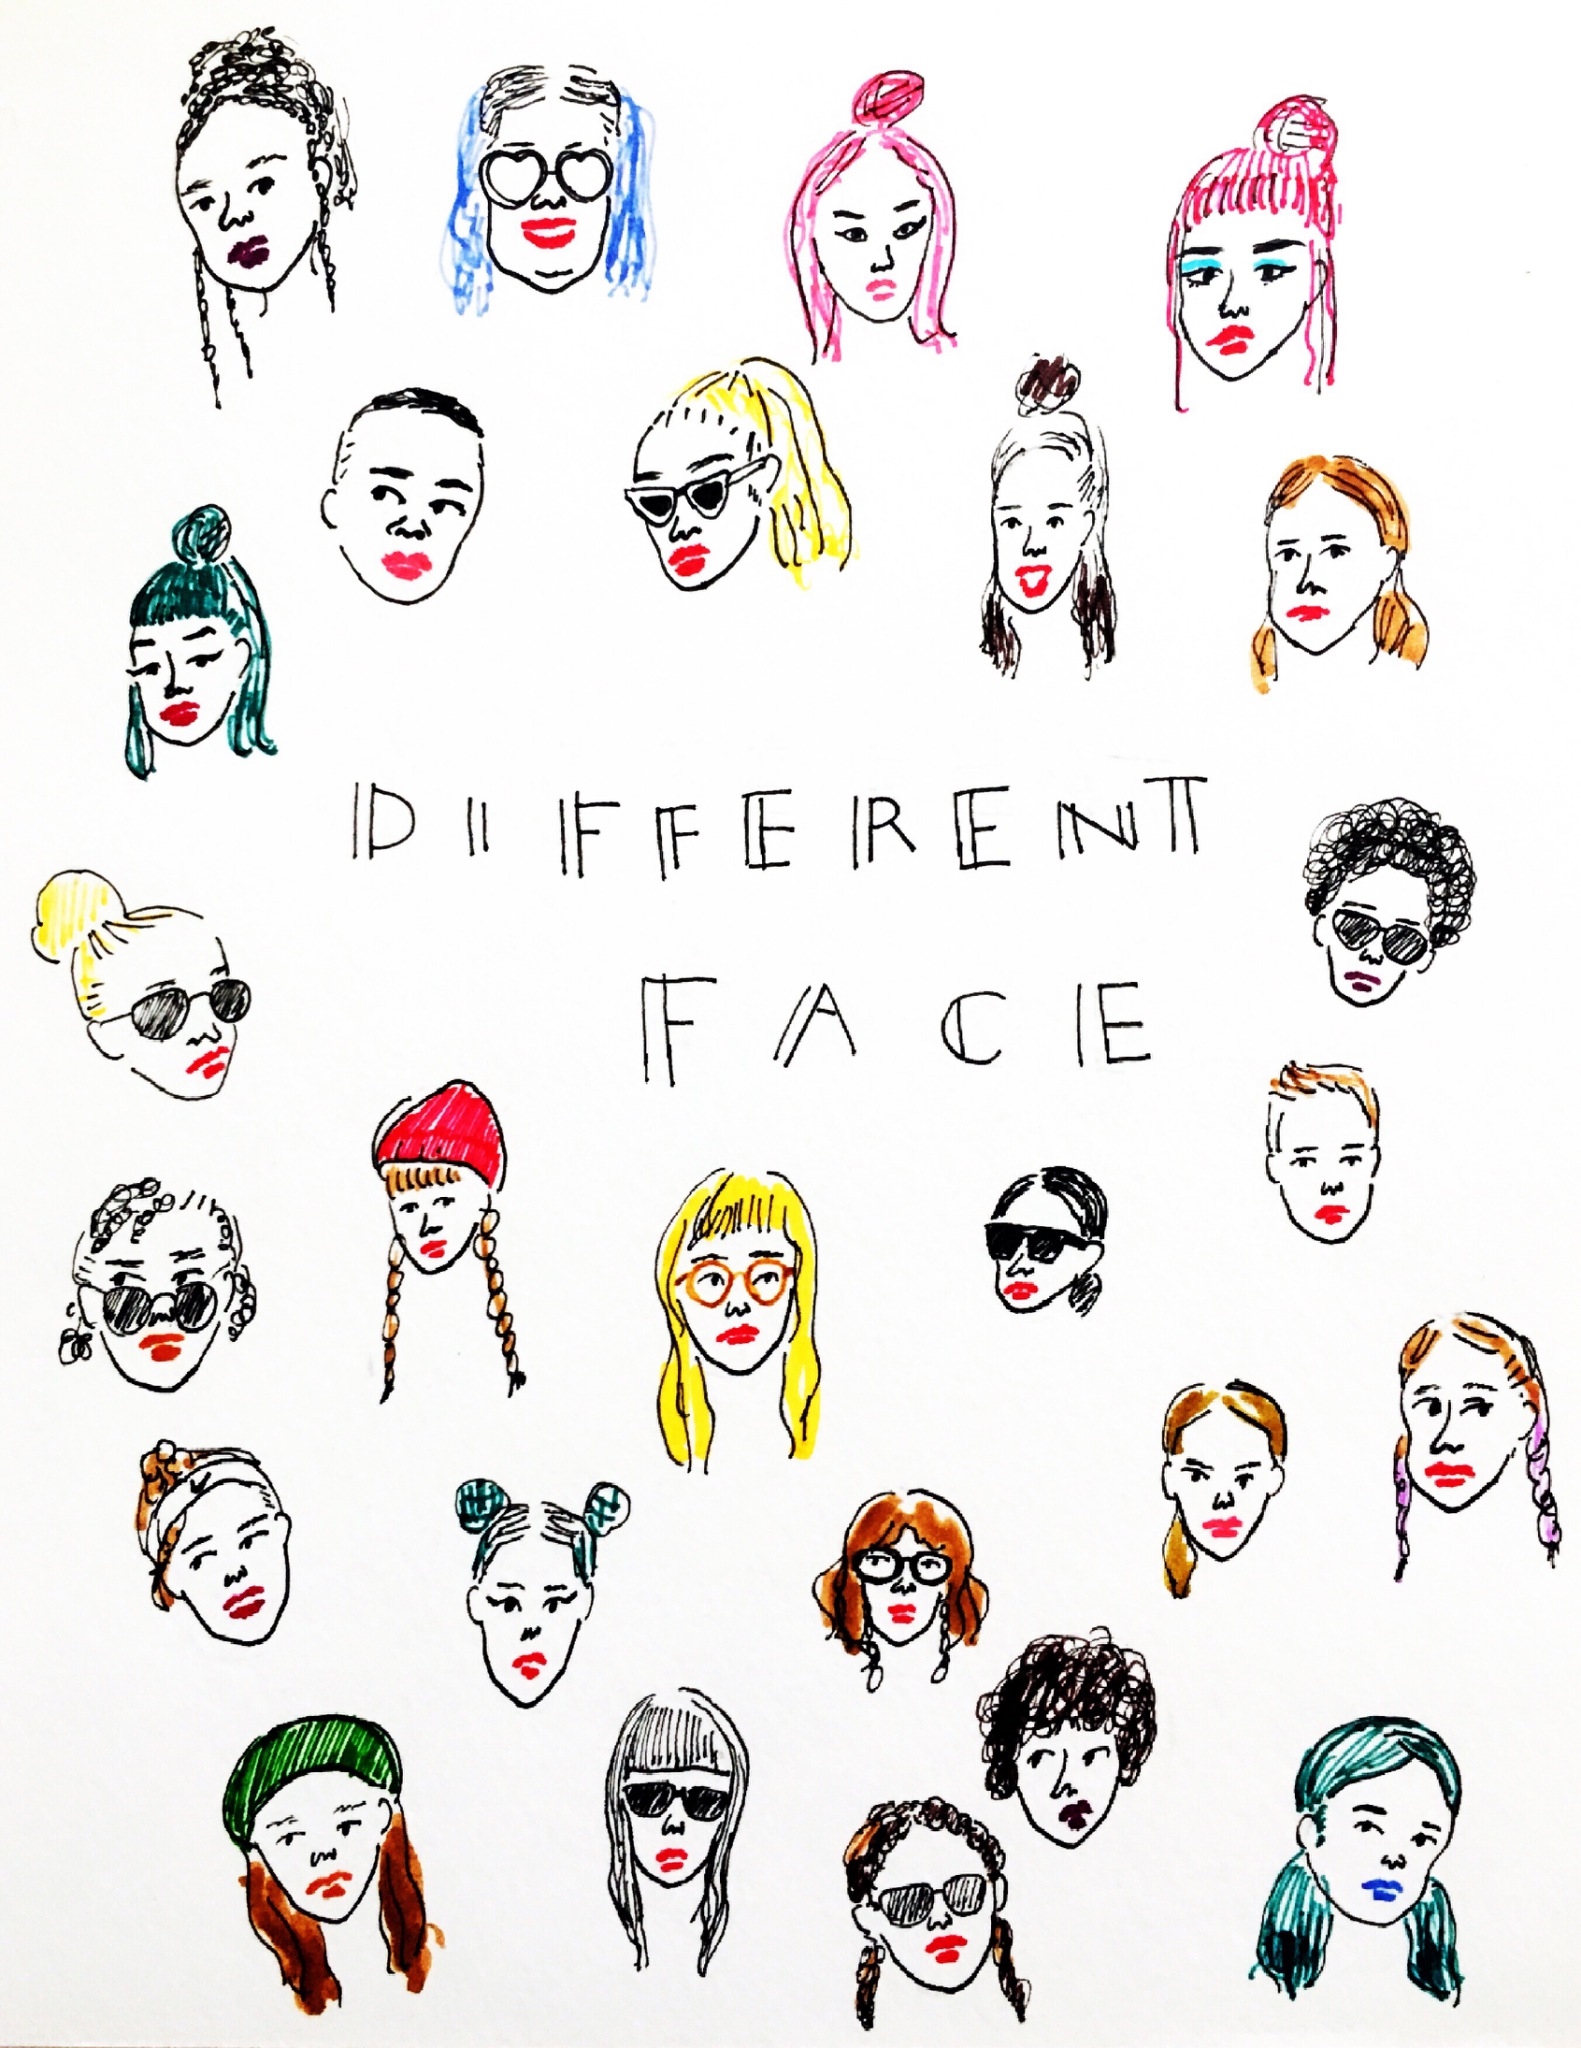 DIFFERENT
FACE